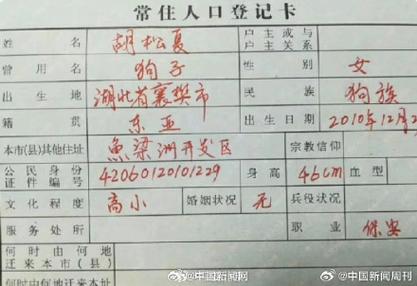 常住人口登记卡
姓名 胡松夏 户主或与户主关系
曾用名 狗子 性别 女
出生地 湖北省襄樊市 民族 狗族
籍贯 东亚 出生日期 2010年12月2
本市(县)其他住址 鱼梁洲开发区 宗教信仰
公民身份证件编号 42060120101229 身高 46cm 血型
文化程度 高小 婚姻状况 无 兵役状况
服务处所 职业 保安
何时由何地迁来本市(县)
何时由何地迁来本址
@中国新闻网 @中国新闻周刊